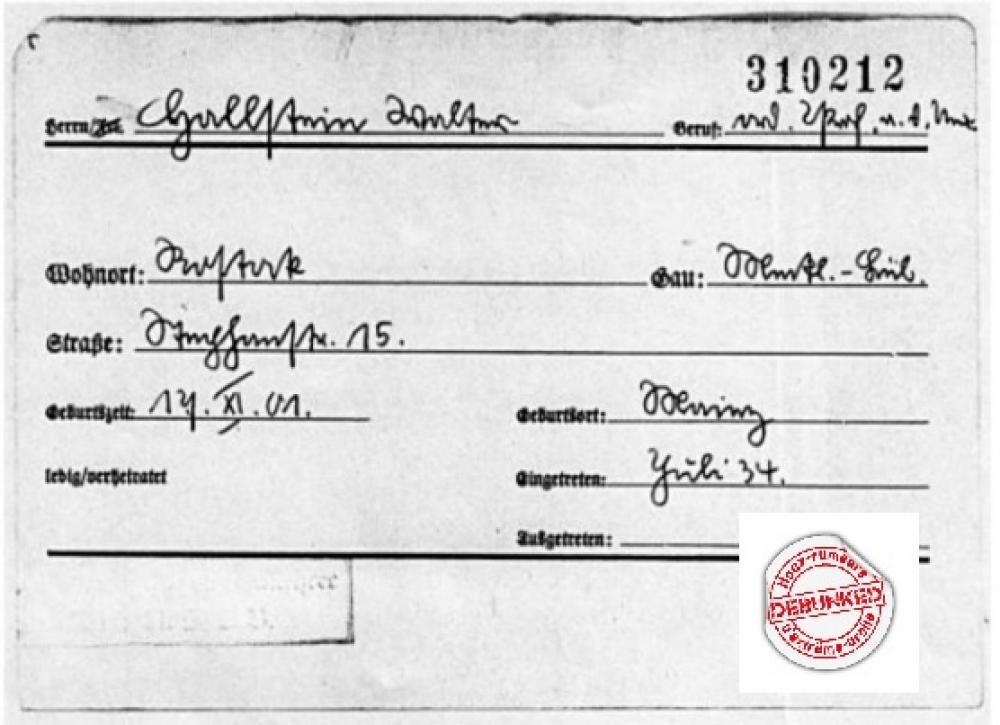 310212
Herrn/Frl. Hallstein Walter Beruf: ord. Prof. a. d. Univ.
Wohnort: Rostock Gau: Meckl.-Lüb.
Straße: 15.
Geburtszeit: 17. XI. 01. Geburtsort: Mainz
ledig/verheiratet Eingetreten: Juli 34.
Ausgetreten:
Hoax-rumeurs
DEBUNKED
d'extrême-droite